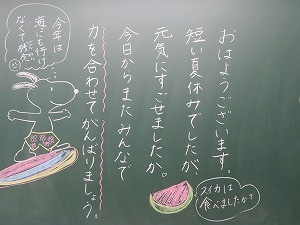 おはようございます。
短い夏休みでしたが、
元気にすごせましたか。
今日からまたみんなで
力を合わせてがんばりましょう。
スイカは
食べましたか？
今年は
海にも行け
なくて残念